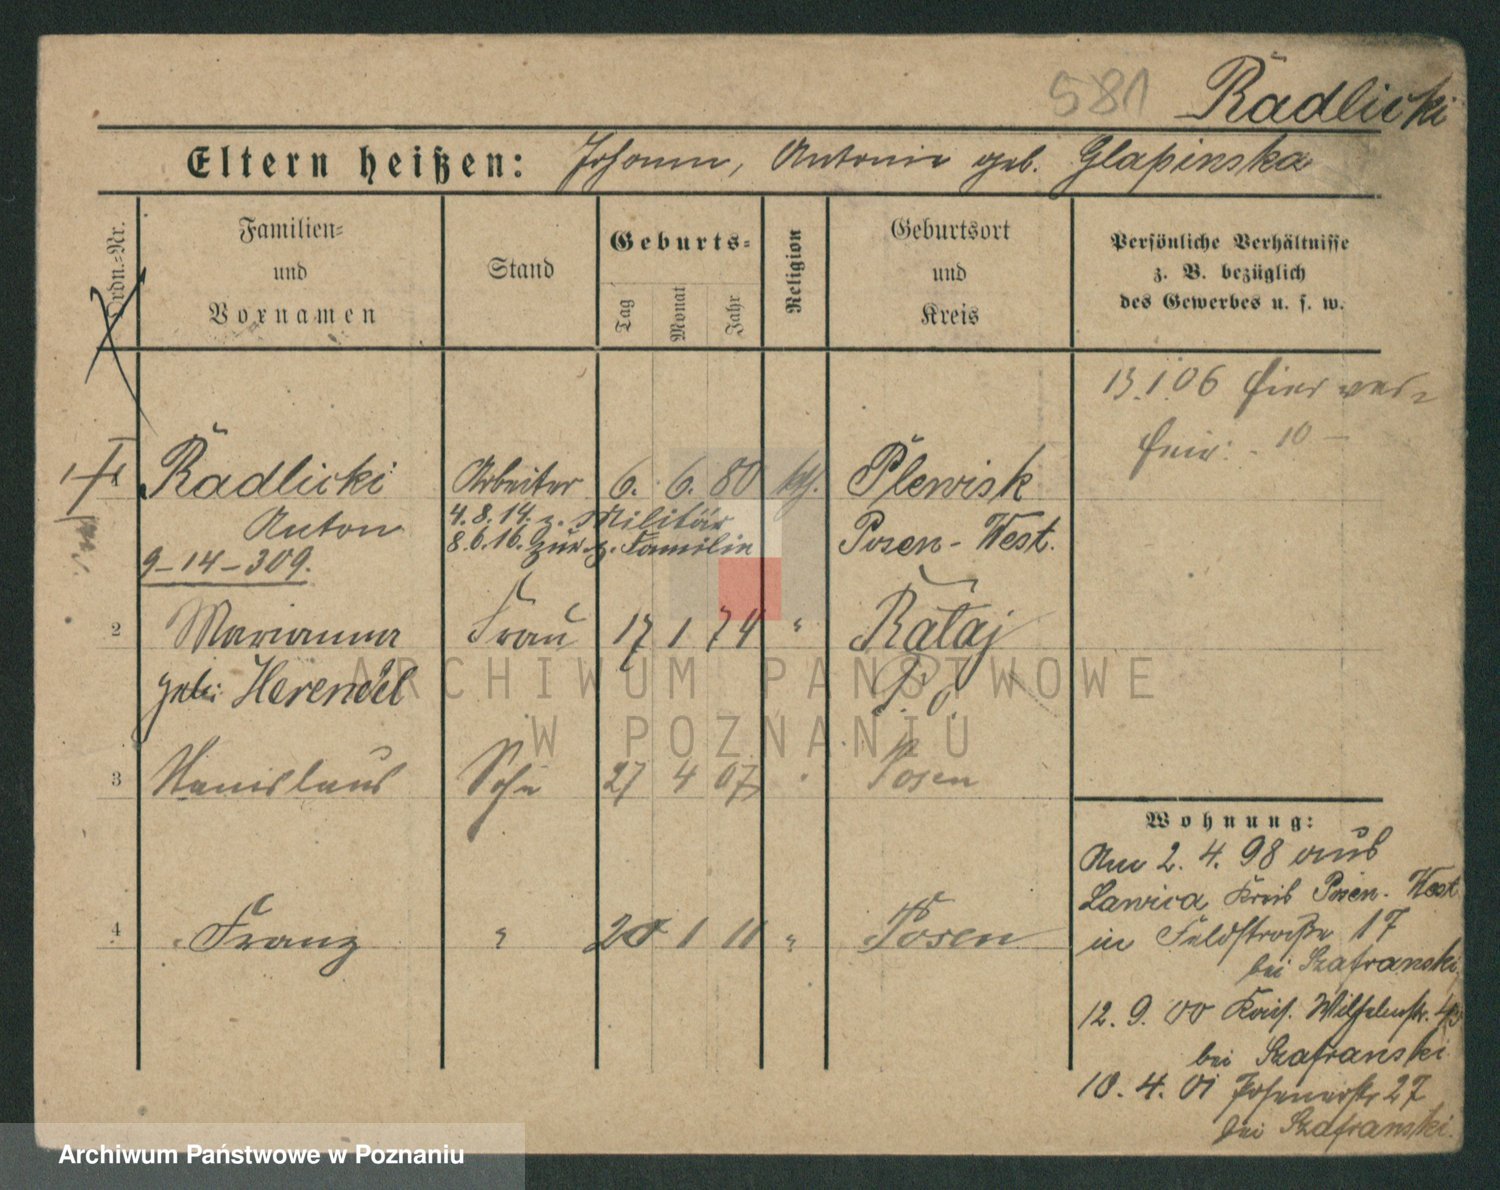 581 Radlicki
Eltern heißen: Johann, Antonie geb. Glapinska
Ordn.-Nr.
Familien-
und
Vornamen
Stand
Geburts-
Tag
Monat
Jahr
Religion
Geburtsort
und
Kreis
Persönliche Verhältnisse
z. B. bezüglich
des Gewerbes u. s. w.
13.1.06 hier ver-
heir. 10 -
1 Radlicki Arbeiter 6. 6. 80 kth. Plewisk
Anton 4.8.14. z. Militär Posen-West.
8.6.16. zur. z. Familie
9-14-309.
2 Marianna Frau 17 1 74 " Rataj
geb. Herendel P. O.
3 Stanislaus Sohn 27 4 07 " Posen
4 Franz " 20 1 11 " Posen
Wohnung:
Am 2. 4. 98 aus
Lawica Kreis Posen-West
in Feldstraße 17
bei Szafranski
12. 9. 00 Kais. Wilhelmstr.
bei Szafranski
10. 4. 01 Posenerstr 27
bei Szafranski.
ARCHIWUM PAŃSTWOWE
W POZNANIU
Archiwum Państwowe w Poznaniu